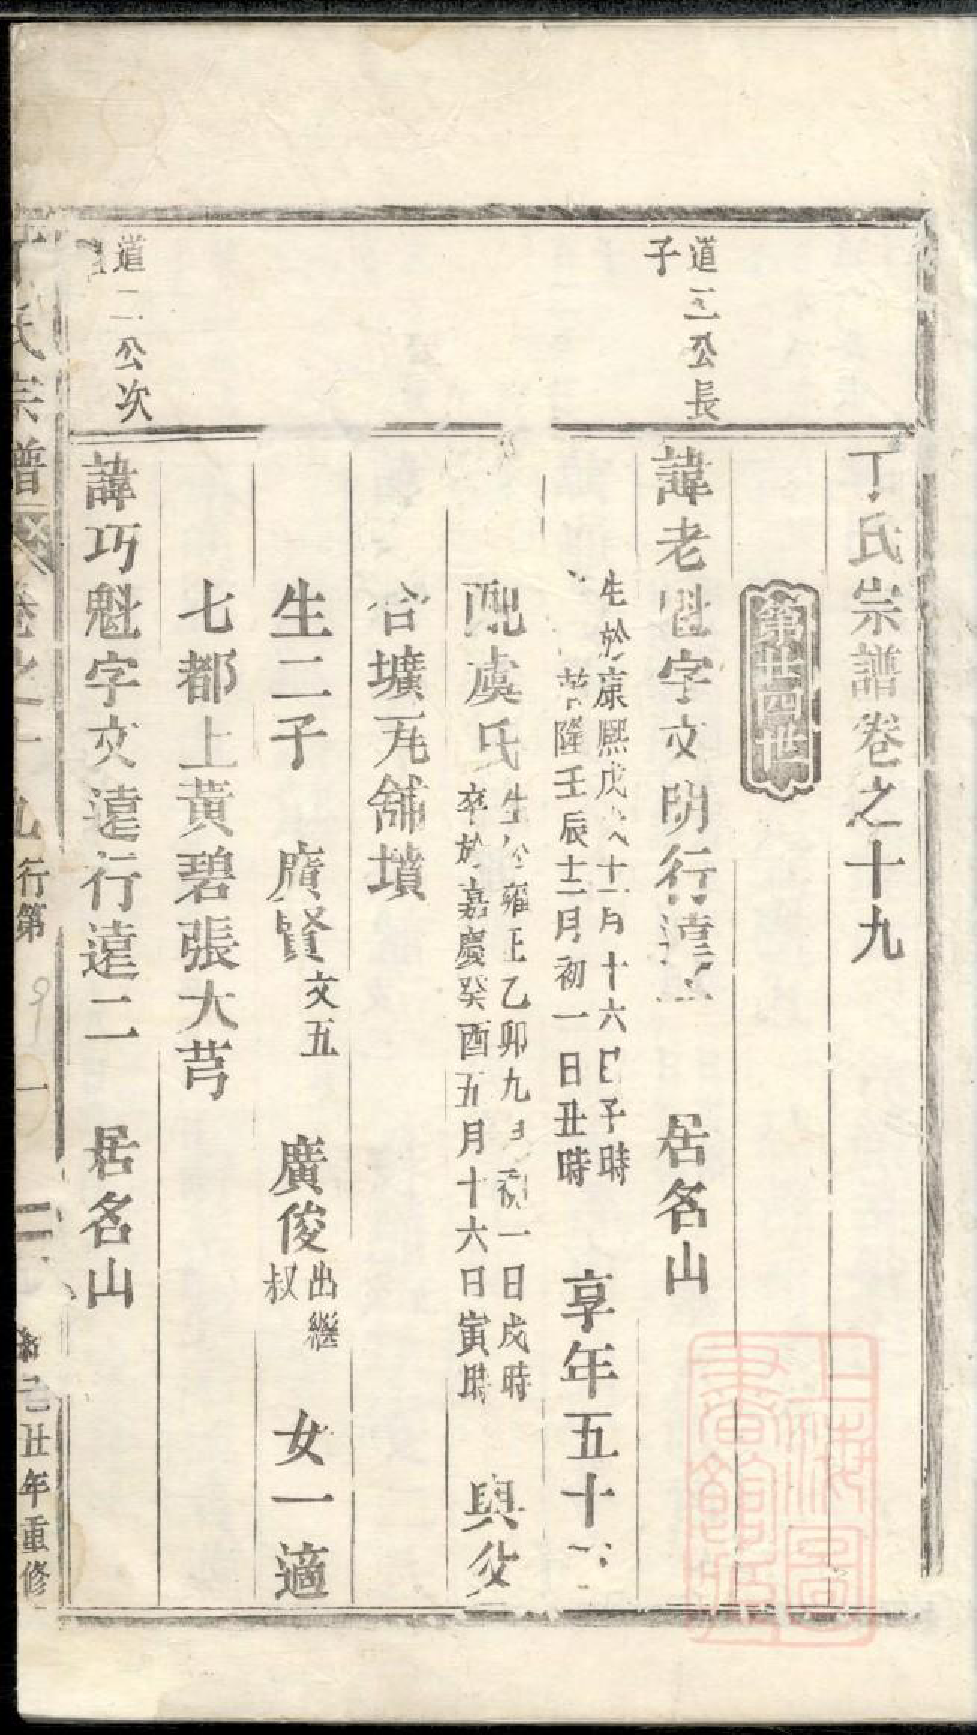 丁氏宗譜卷之十九
第廿四世
道三公長
子
諱老魁字文明行達 居名山
生於康熙戊 十一月十六日子時
乾隆壬辰十二月初一日丑時
享年五十
配虞氏
生於雍正乙卯九月初一日戌時
卒於嘉慶癸酉五月十六日寅時
與父
合壙瓦舖墳
生二子 廣賢文五 廣俊出繼叔 女一適
七都上黃碧張大芎
道二公次
諱巧魁字文遠行遠二 居名山
丁氏宗譜 卷之十九 行第 一
己丑年重修
上海圖書館藏